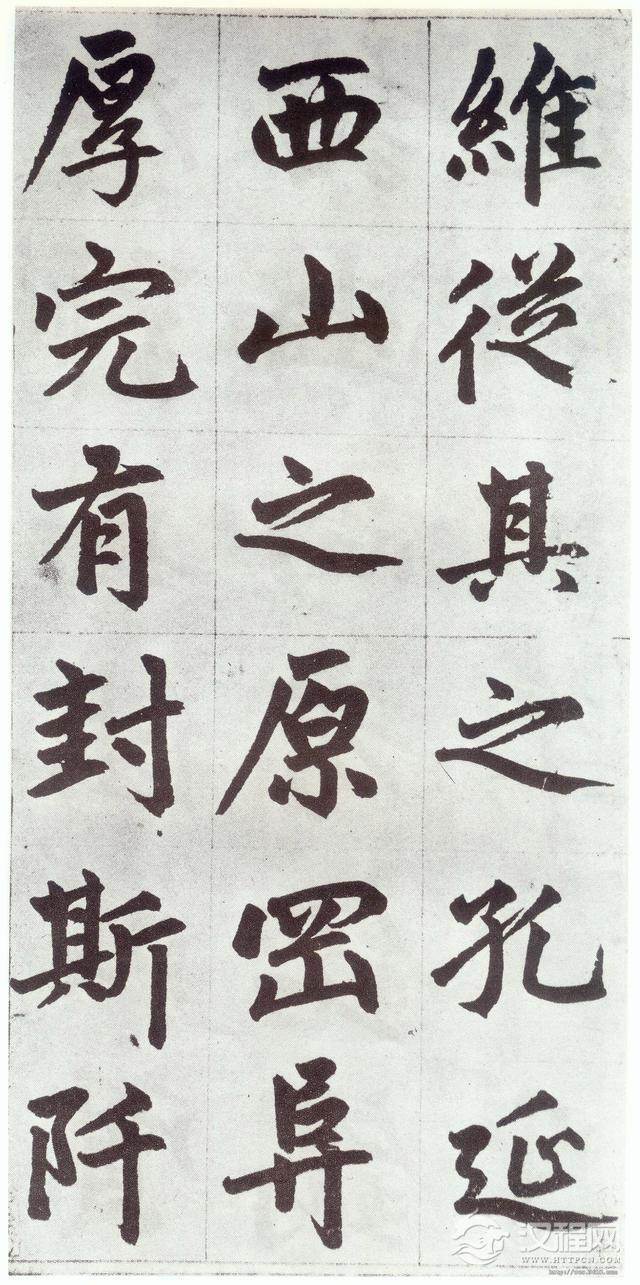 維從其之孔延
西山之原罡阜
厚完有封斯阡
汉程网
WWW.HTTPCN.COM